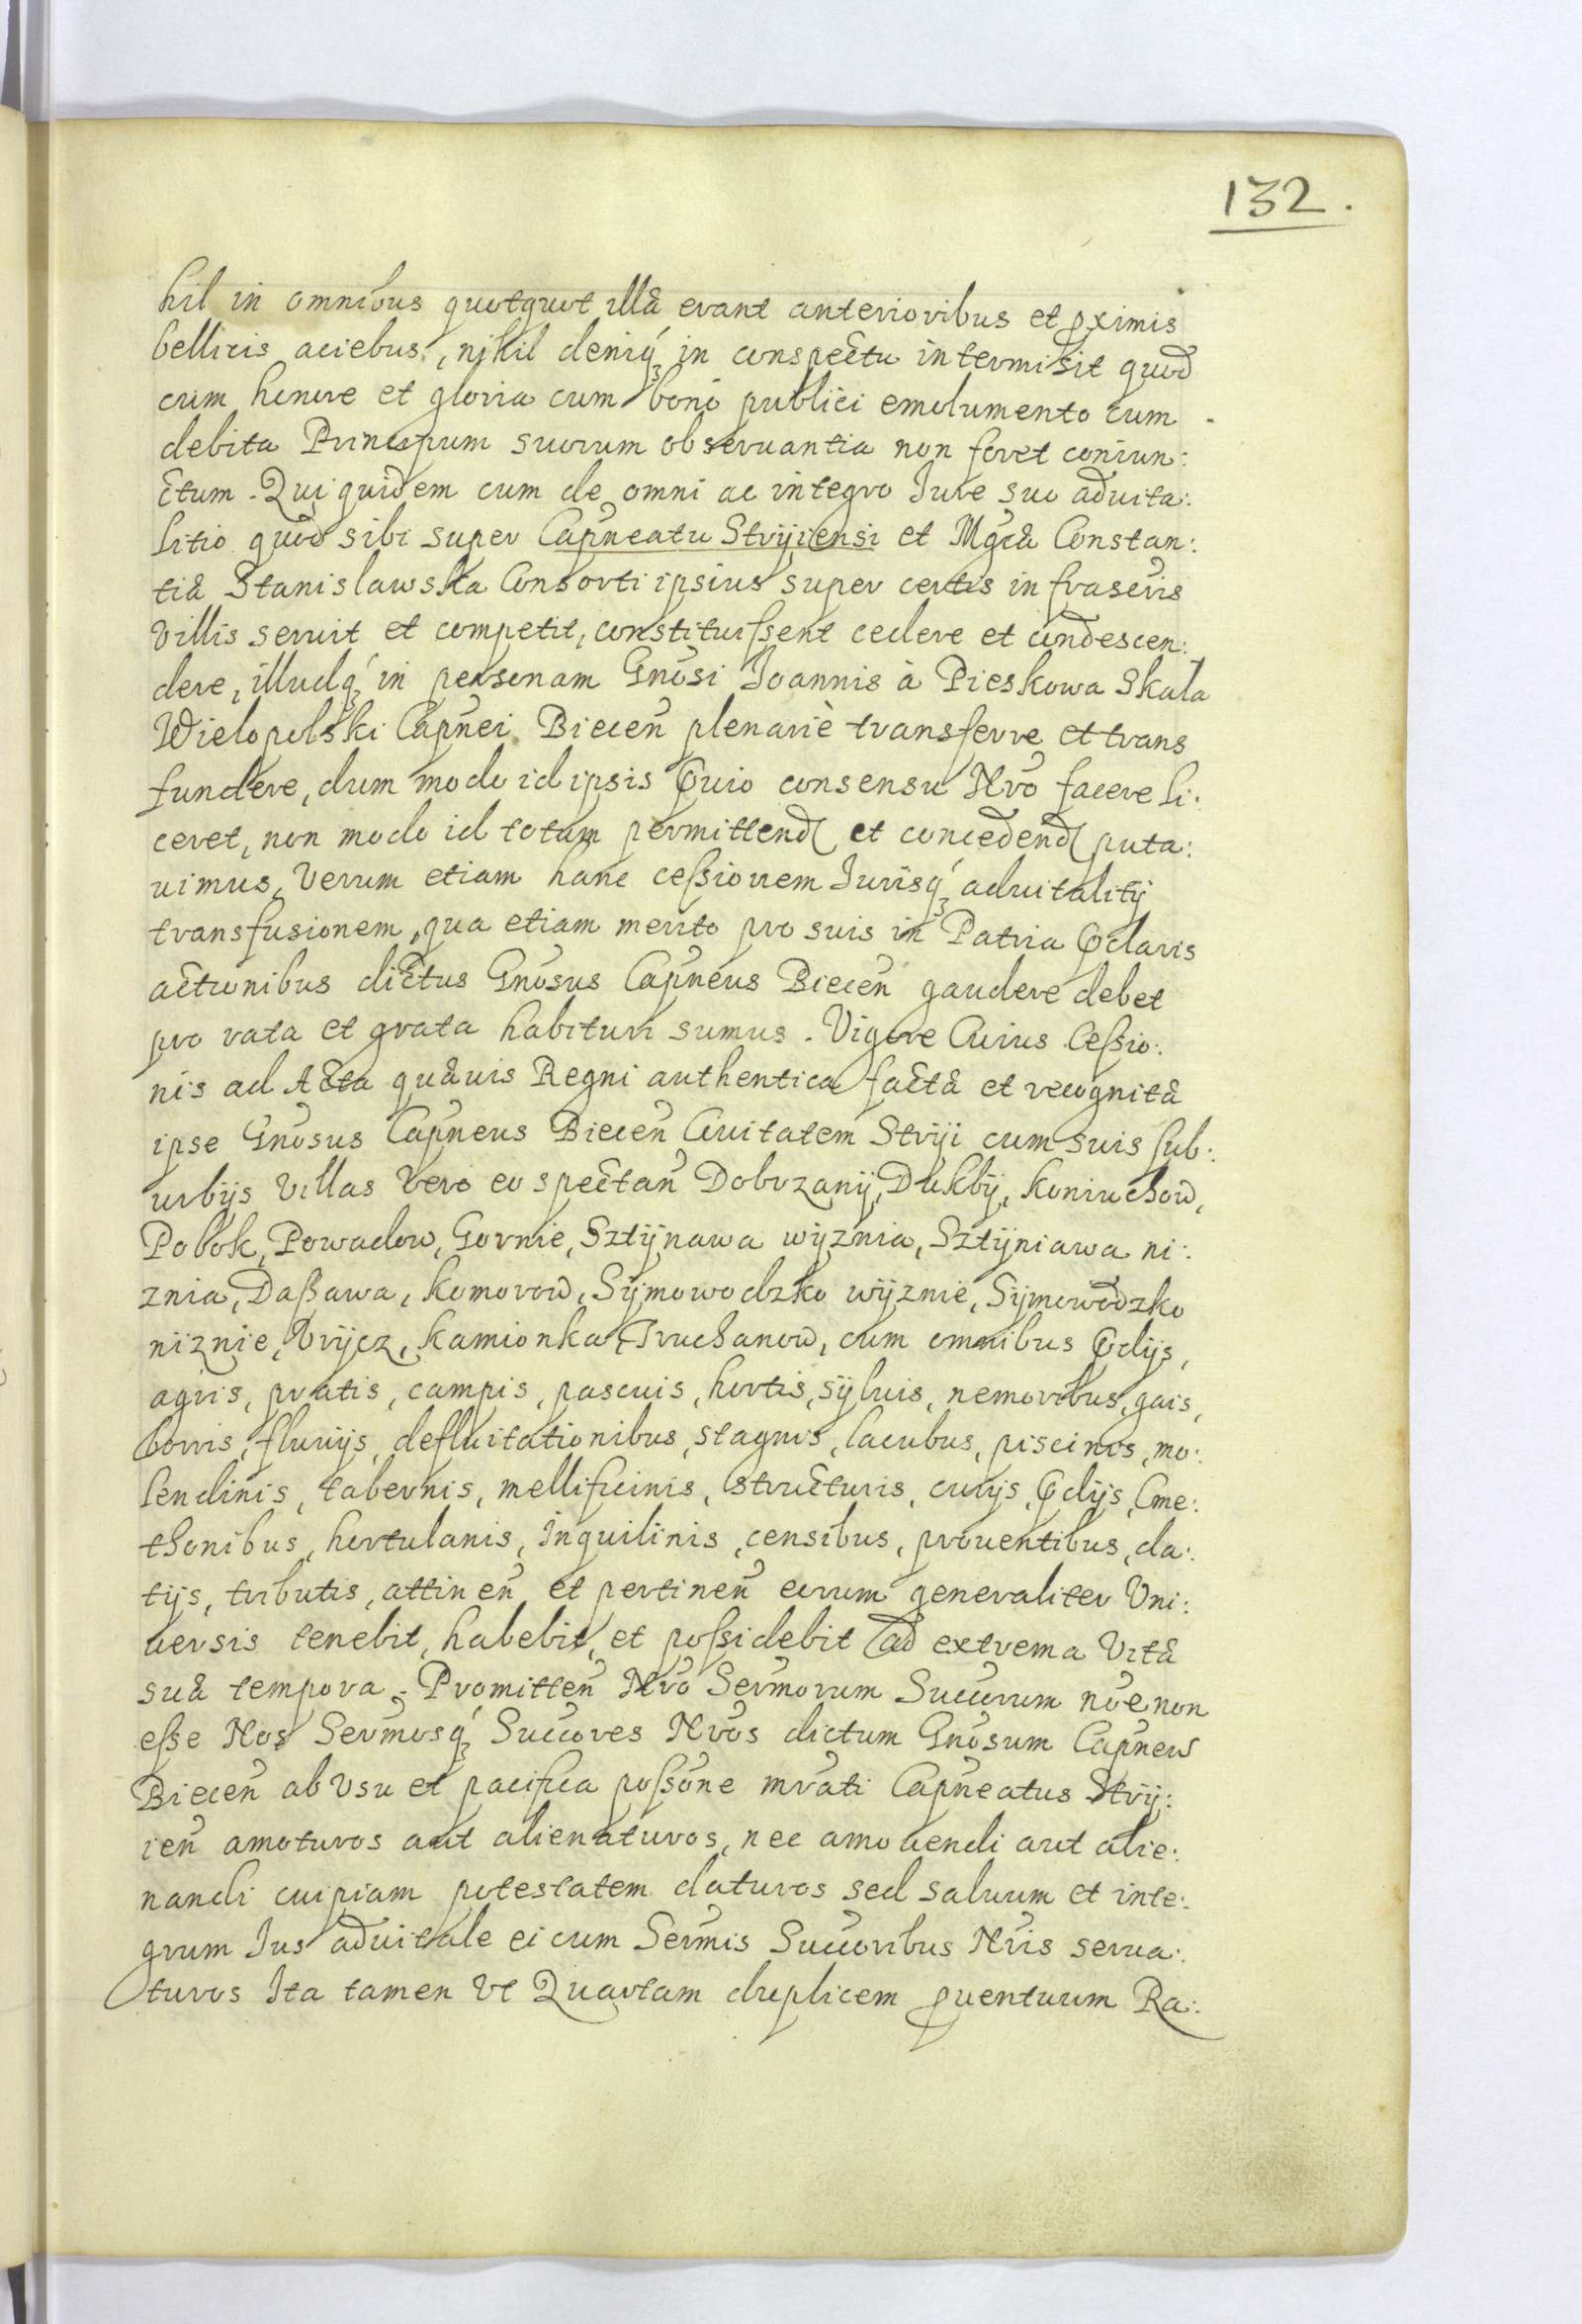 132.
hil in omnibus quotquot illa erant anterioribus et pximis
bellicis aciebus, nihil deniq in conspectu intermisit quod
cum honore et gloria cum boni publici emolumento cum
debita Principum suorum obseruantia non foret coniun:
ctum. Qui quidem cum de omni ac integro Jure suo aduita:
litio quod sibi super Capneatu Stryiensi et Mgca Constan:
tia Stanislawska Consorti ipsius super certis infrascris
Villis seruit et competit, constituissent cedere et condescen:
dere, illudq in personam Gnosi Joannis à Pieskowa Skala
Wielopolski Capnei Biecen plenariè transferre et trans
fundere, dum modo id ipsis pvio consensu Nro facere li:
ceret, non modo id totum permittend et concedend puta:
uimus, Verum etiam hanc cessionem Jurisq aduitalitij
transfusionem, qua etiam merito pro suis in Patria pclaris
actionibus dictus Gnosus Capneus Biecen gaudere debet
pro rata et grata habituri sumus. Vigore Cuius Cessio:
nis ad Acta quæuis Regni authentica facta et recognita
ipse Gnosus Capneus Biecen Ciuitatem Stryi cum suis sub:
urbijs Villas Vero eo spectan Dobrzany, Dukby, Koniuchow,
Pobok, Powadow, Gornie, Sztynawa wyznia, Sztyniawa ni:
znia, Dassawa, Komorow, Symowodzko wyznie, Symowodzko
niznie, Vrycz, Kamionka, Truchanow, cum omnibus pdijs,
agris, pratis, campis, pascuis, hortis, syluis, nemoribus, gais,
borris, fluuijs, defluitationibus, stagnis, lacubus, piscinis, mo:
lendinis, tabernis, mellificinis, structuris, curijs, pdijs, Cme:
thonibus, hortulanis, Inquilinis, censibus, prouentibus, da:
tijs, tributis, attinen et pertinen eorum generaliter Vni:
uersis tenebit, habebit, et possidebit ad extrema Vita
sua tempora. Promitten Nro Sermorum Succorum noe non
esse Nos Sermosq Succores Nros dictum Gnosum Capneus
Biecen ab Vsu et pacifica possone mrati Capneatus Stry:
ien amoturos aut alienaturos, nec amouendi aut alie:
nandi cuipiam potestatem daturos sed saluum et inte:
grum Jus aduitale ei cum Sermis Succoribus Nris serua:
turos Ita tamen Vt Quartam duplicem puentuum Ra: